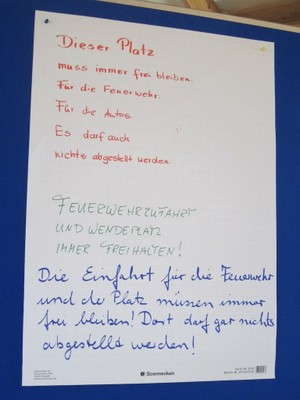 Dieser Platz
muss immer frei bleiben.
Für die Feuerwehr.
Für die Autos.
Es darf auch
nichts abgestellt werden.
FEUERWEHRZUFAHRT
UND WENDEPLATZ
IMMER FREIHALTEN!
Die Einfahrt für die Feuerwehr
und de Platz müssen immer
frei bleiben! Dort darf gar nichts
abgestellt werden!
Soennecken